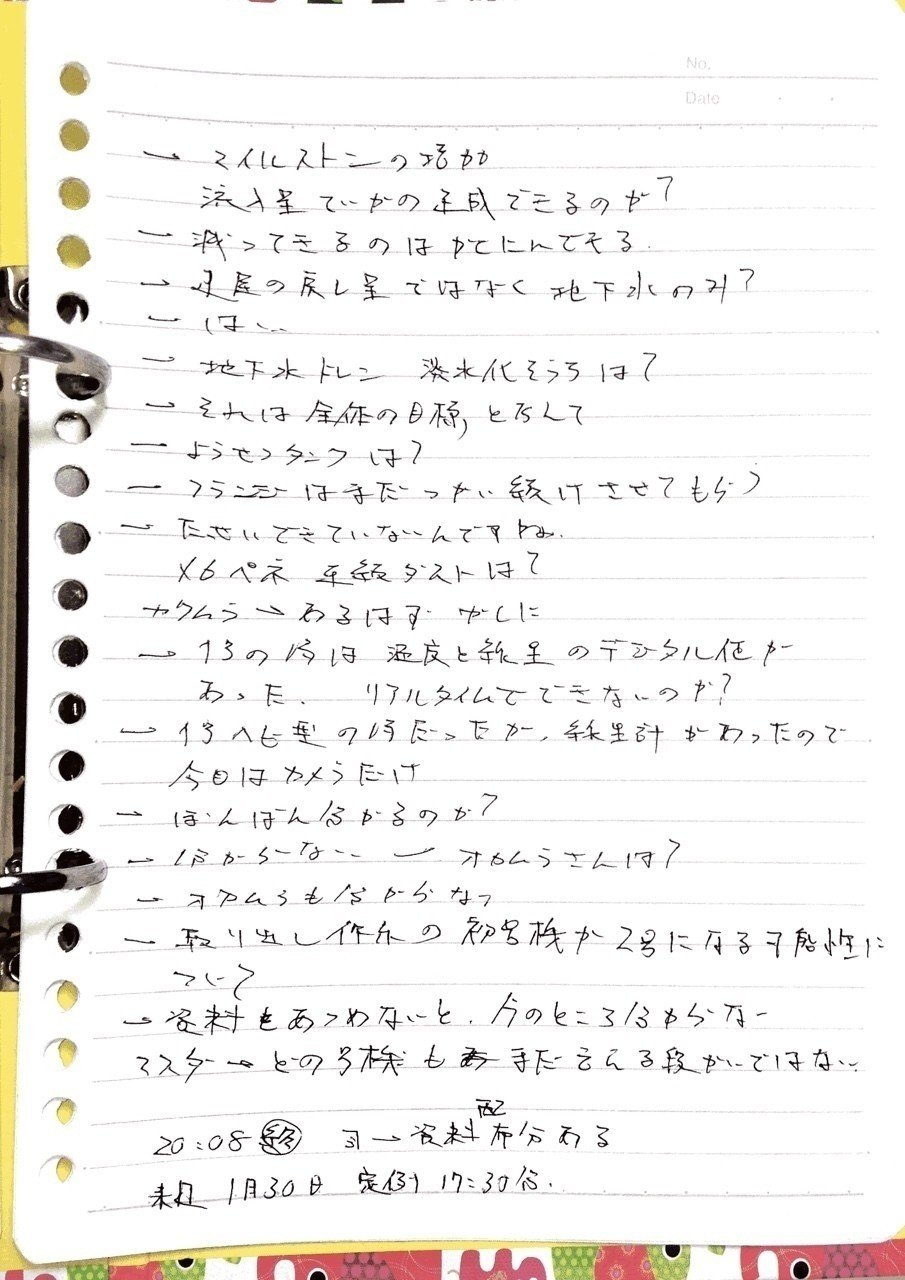 No.
Date
→ マイルストンの増加
流入量 ていかの 達成できるのか?
→ 減ってきてるのは
→ 建屋の戻し量ではなく 地下水のみ?
→ はい
→ 地下水ドレン 淡水化そうちは?
→ それは全体の目標, として
→ ようせつタンクは?
→ フランジはまだつかい続けさせてもらう
→ たっせいできていないんですね.
X6ペネ 連続ダストは?
オカムラ → あるはず たしかに
→ 1号の時は 温度と線量のデジタル値が
あった. リアルタイムでできないのか?
→ 1号ヘビ型の時だったが、線量計があったので
今日はカメラだけ
→ ほんばん分かるのか?
→ 分からない オカムラさんは?
→ オカムラも分からない
→ 取り出し作業の初号機が2号になる可能性に
ついて
→ 資料をあつめないと、今のところ分からない
マスダ → どの号機も まだ言える段かいではない
20:08 終 司→資料配布分ある
来週 1月30日 定例 17:30分.